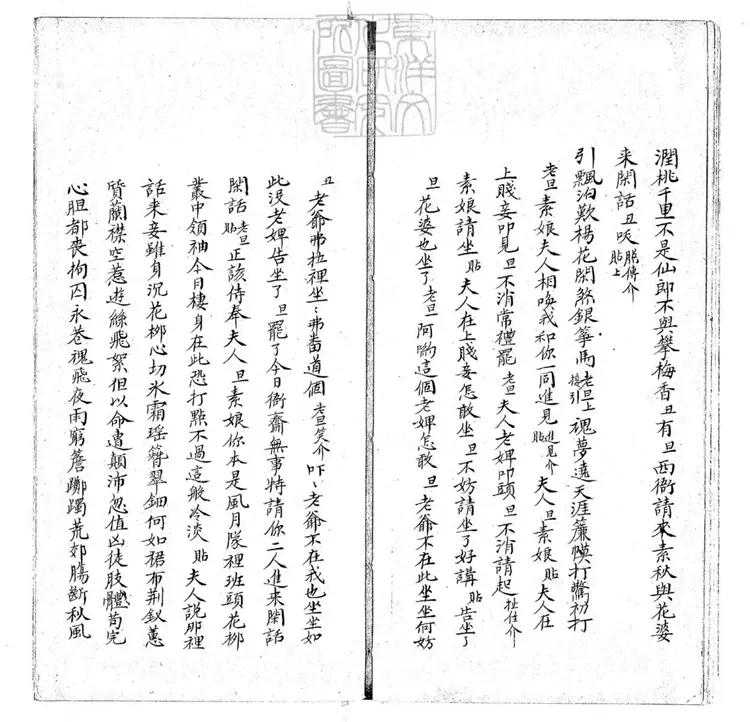 潤桃千里不是仙郎不與攀梅香丑有旦西衙請來素秋與花婆
来閑話丑咲照傳介貼上
引飄泊歎楊花閑煞銀箏馬老旦上接引魂夢遠天涯簾幙打鴬初打
老旦素娘夫人相喚我和你一同進見貼進見介夫人旦素娘貼夫人在
上賤妾叩見旦不消常禮罷老旦夫人老婢叩頭旦不消請起扯住介
素娘請坐貼夫人在上賤妾怎敢坐旦不妨請坐了好講貼告坐了
旦花婆也坐了老旦阿喲這個老婢怎敢旦老爺不在此坐坐何妨
丑老爺弗拉裡坐︰弗番道個老旦笑介吓、老爺不在我也坐坐如
此没老婢告坐了旦罷了今日衙齋無事特請你二人進来閑話
閑話貼老旦正該侍奉夫人旦素娘你本是風月隊裡班頭花柳
叢中領袖今日棲身在此恐打點不過這般冷淡貼夫人說那裡
話来妾雖身沉花柳心切氷霜瑶簪翠鈿何如裙布荆釵蕙
質蘭襟空惹遊絲飛絮但以命遭顛沛忽值凶徒肢體苟完
心胆都喪拘囚永巷魂飛夜雨窮簷躑躅荒郊腸斷秋風